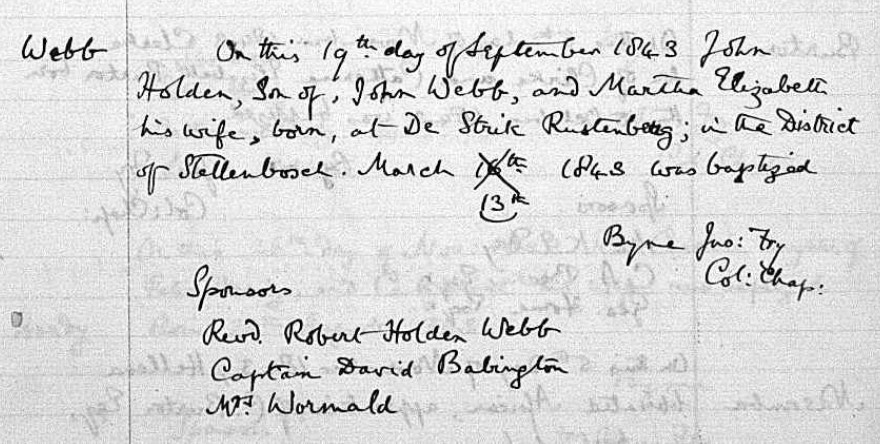 Webb On this 19th day of September 1843 John
Holden, Son of, John Webb, and Martha Elizabeth
his wife, born, at De Strik Rustenberg; in the District
of Stellenbosch. March 16th 1843 was baptized
13th
By me Jno: Fry
Col: Chap:
Sponsors
Revd. Robert Holden Webb
Captain David Babington
Wormald